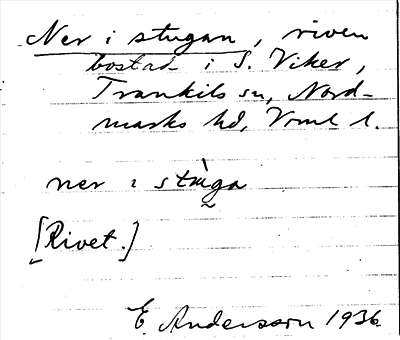 Ner i stugan, riven
bostad i S. Viker,
Trankils sn, Nord-
marks hd, Vrml l.
ner i stùga
[Rivet.]
E. Andersson 1936